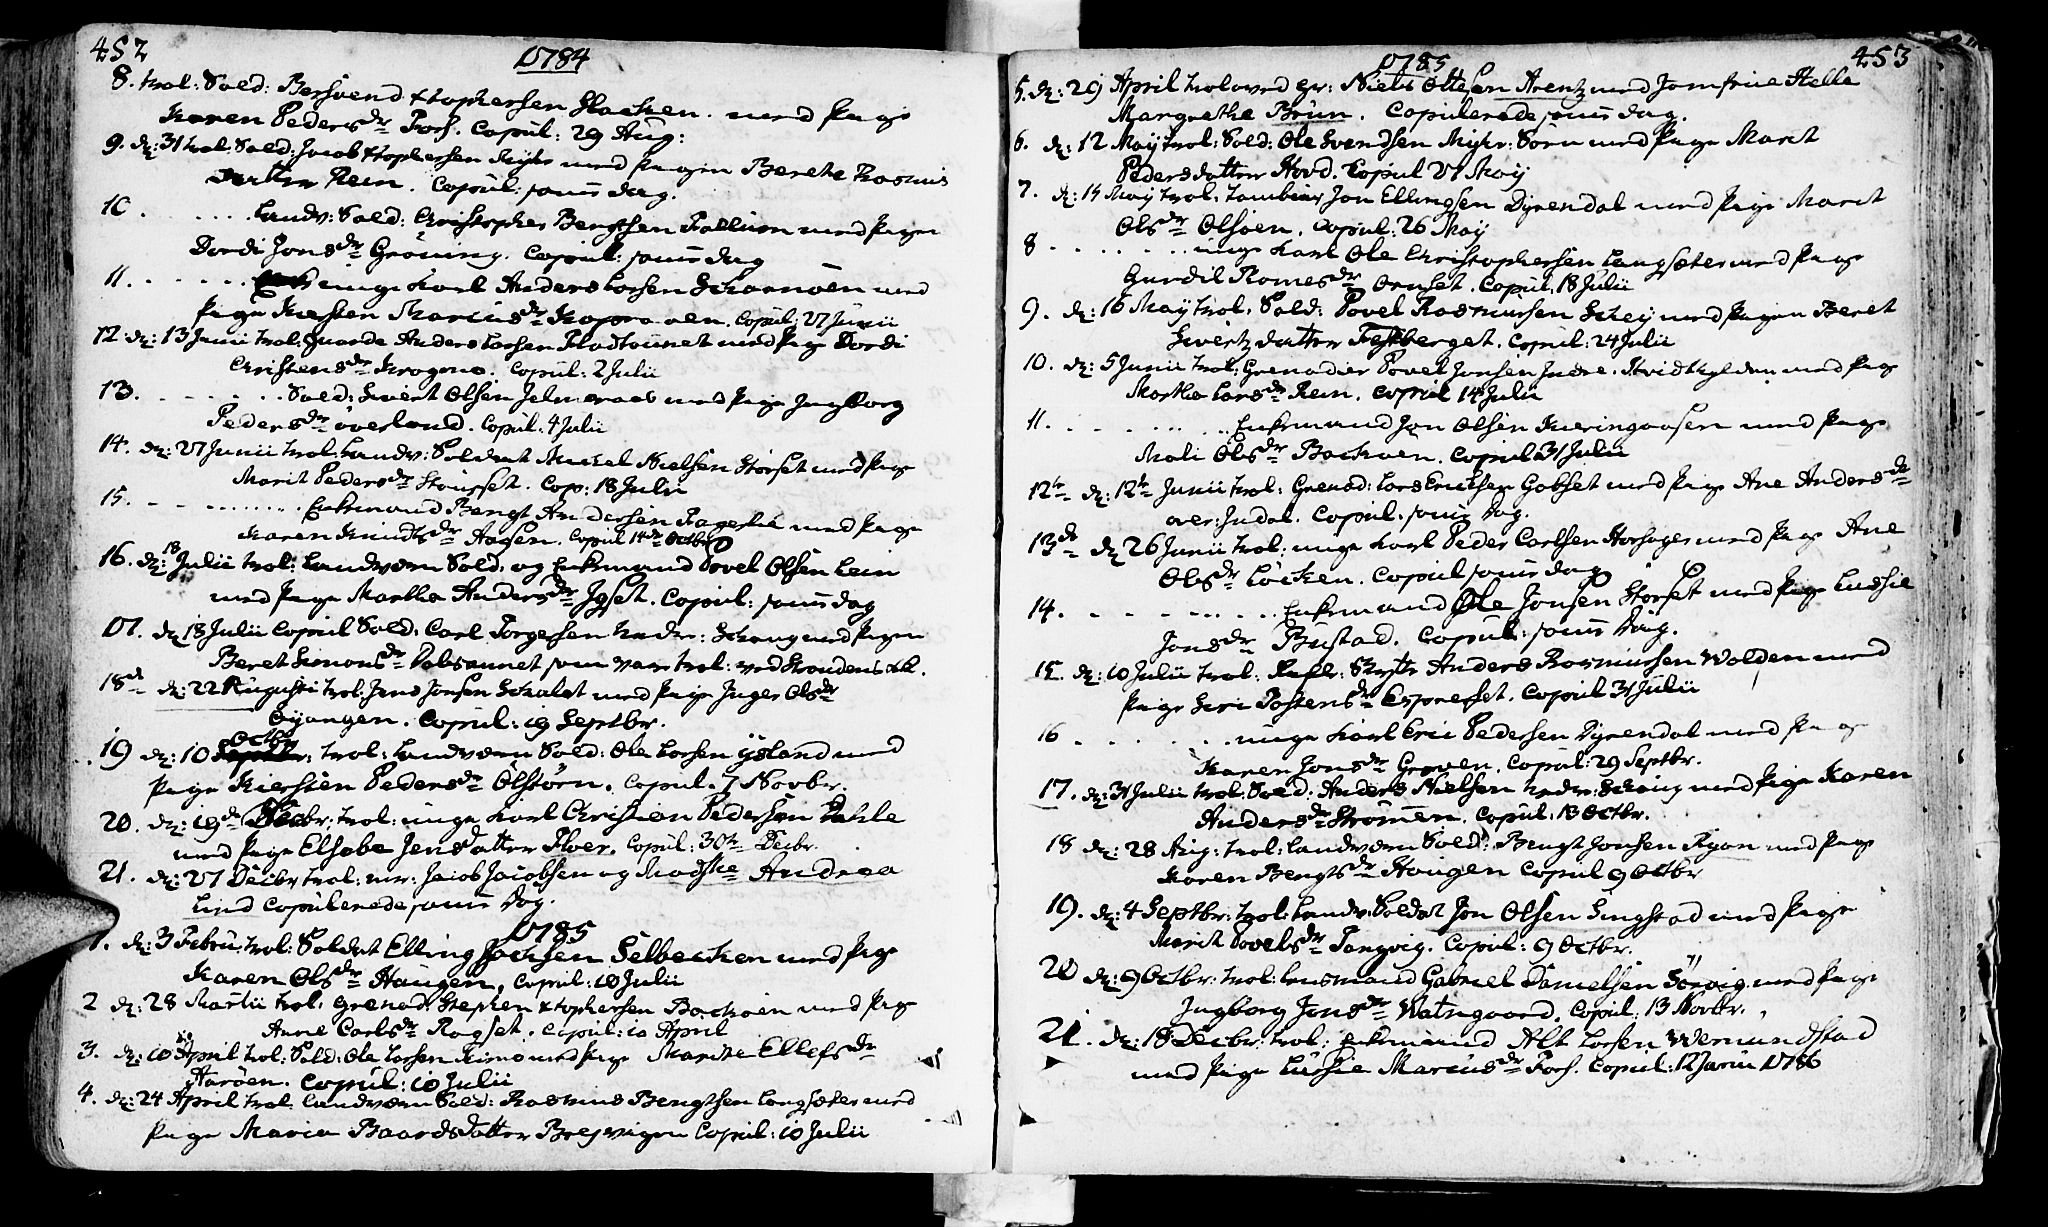 452
1784
8. trol: Sold: Bersvend Xtophersen Slacken. med Pige
Karen Pedersdr Fors. Copul: 29 Aug:
9. d: 31 trol: Sold: Jacob Xtophersen med Pigen Berethe Rasmus
datter Rein. Copul: samme dag.
10. Landv: Sold: Christopher Bengtsen med Pigen
Dordi Jonsdr Grøning. Copul: samme dag
11. unge Karl Anders Larsen Skarnøen med
Pige Kiersten Marcusdr. Copul: 27 Junii
12 d: 13 Junii trol: Anders Larsen med Pige Dordi
Christensdr Krogene. Copul: 2 Julii
13. Sold: Sivert Olsen med Pige Ingborg
Pedersdr Overland. Copul: 4 Julii
14. d: 27 Junii trol: Landv: Soldat Nielsen Størset med Pige
Marit Pedersdr. Cop: 18 Julii
15. Enkemand Bengt Andersen med Pige
Karen Knudtsdr Aagen. Copul 14de Octbr
16. d: 18 Julii trol: Landværn Sold: og Enkemand Povel Olsen Lein
med Pige Marthe Andersdr Igset. Copul: samme dag
17. d 18 Julii Copul Sold: Carl Torgersen Nedr: Schaug med Pigen
Beret Simonsdr som var trol: ved
18de d: 22 Augusti trol: Jens Jonsen med Pige Inger Olsdr
Øyangen. Copul: 19 Septbr.
19 d: 10 Octbr: trol: Landværn Sold: Ole Larsen Ysland med
Pige Kiersten Pedersdr Olstørn. Copul. 7 Novbr.
20. d: 19de Decbr: trol: unge Karl Christian Pedersen Dahle
med Pige Elsebe Jensdatter Floer. Copul: 30te Decbr.
21. d: 27 Decbr trol: mr: Jacob Jacobsen og Madske Andrea
Lind Copulerede samme dag.
1785
1. d: 3 Febru: trol: Soldat Elling Selbecken med Pige
Karen Olsdr Haugen, Copul: 10 Julii
2 d: 28 Martii trol: Grenad: Stephen Xtophersen Backøen med Pige
Anne Carlsdr Rogset. Copul: 10 April
3. d: 10 April trol: Sold: Ole Larsen med Pige Marithe Ellefsdr
Aarøen. Copul: 10 Julii
4. d: 24 April trol: Landværn Sold: Rasmus Bengtsen Langsæter med
Pige Maria Baardsdatter Brejvigen Copul: 10 Julii
1785
453
5. d: 29 April troloved Hr: Niels Ottesen Arentz med Jomfrue Helle
Margrethe Brun. Copulerede samme dag.
6. d: 12 Maij trol: Sold: Ole Svendsen Myhr: Sørn med Pige Marit
Pedersdatter Hovd. Copul 27 Maij
7. d: 14 Maij trol: Tambour Jon Ellingsen Dyrendal med Pige Marit
Olsdr Olsøen. Copul: 26 Maij
8 unge Karl Ole Christophersen Langsæter med Pige
Gundil Romesdr Ornset. Copul. 18 Julii
9. d: 16 Maij trol: Sold: Povel Rasmussen Schej med Pigen Beret
Sivertzdatter. Copul: 24 Julii
10. d: 5 Junii trol: Grenadier Povel Jonsen Indre. Hvidtkylden med Pige
Marthe Larsdr Rein. Copul 14 Julii
11. Enkemand Jon Olsen Kieringaasen med Pige
Mali Olsdr Backøen. Copul 31 Julii
12te d: 12te Junii trol: Grenad: Lars Erichsen Gobset med Pige Ane Andersdr
over: Indal. Copul: samme dag.
13de d 26 Junii trol: unge Karl Peder Carlsen med Pige Ane
Olsdr Løcken. Copul samme dag
14. Enkemand Ole Jonsen Størset med Pige Lussie
Jonsdr Bustad. Copul: samme dag.
15. d: 10 Julii trol: Anders Rasmussen Wolden med
Pige Siri Tostensdr Espnesset. Copul 31 Julii
16 unge Karl Eric Pedersen Dyrendal med Pige
Karen Jonsdr Groven. Copul: 29 Septbr.
17. d: 31 Julii trol: Sold: Anders Nielsen Nedr: Schaug med Pige Karen
Andersdr Strømen. Copul: 13 Octbr.
18 d: 28 Aug: trol: Landværn Sold: Bengt Jonsen Ryan med Pige
Karen Bengtsdr Haugen Copul 9 Octbr
19. d: 4 Septbr: trol: Landv: Soldat Jon Olsen Singstad med Pige
Marit Povelsdr Tangvig. Copul: 9 Octbr.
20 d: 9 Octbr: trol: Lensmand Gabriel Danielsen Sørvig med Pige
Ingborg Jensdr Watngaard. Copul: 13 Novbr.
21. d: 18 Decbr: trol: Enkemand Alt Larsen Wernundstad
med Pige Lussie Marcusdr Fors. Copul: 12 Janu 1786